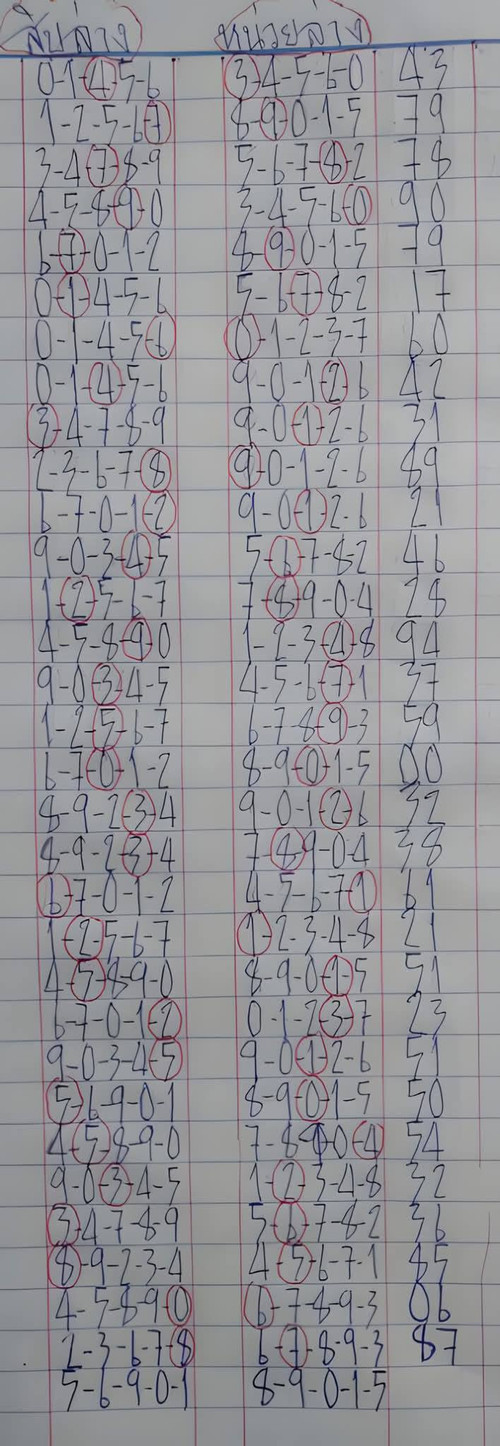 สิบล่าง หน่วยล่าง
0-1-4-5-6 3-4-5-6-0 43
1-2-5-6-7 8-9-0-1-5 79
3-4-7-8-9 5-6-7-8-2 78
4-5-8-9-0 3-4-5-6-0 90
6-7-0-1-2 8-9-0-1-5 79
0-1-4-5-6 5-6-7-8-2 17
0-1-4-5-6 0-1-2-3-7 60
0-1-4-5-6 9-0-1-2-6 42
3-4-7-8-9 9-0-1-2-6 31
2-3-6-7-8 9-0-1-2-6 89
6-7-0-1-2 9-0-1-2-6 21
9-0-3-4-5 5-6-7-8-2 46
1-2-5-6-7 7-8-9-0-4 28
4-5-8-9-0 1-2-3-4-8 94
9-0-3-4-5 4-5-6-7-1 37
1-2-5-6-7 6-7-8-9-3 59
6-7-0-1-2 8-9-0-1-5 00
8-9-2-3-4 9-0-1-2-6 32
8-9-2-3-4 7-8-9-0-4 38
6-7-0-1-2 4-5-6-7-1 61
1-2-5-6-7 1-2-3-4-8 21
4-5-8-9-0 8-9-0-1-5 51
6-7-0-1-2 0-1-2-3-7 23
9-0-3-4-5 9-0-1-2-6 51
5-6-9-0-1 8-9-0-1-5 50
4-5-8-9-0 7-8-9-0-4 54
9-0-3-4-5 1-2-3-4-8 32
3-4-7-8-9 5-6-7-8-2 36
8-9-2-3-4 4-5-6-7-1 85
4-5-8-9-0 6-7-8-9-3 06
2-3-6-7-8 6-7-8-9-3 87
5-6-9-0-1 8-9-0-1-5